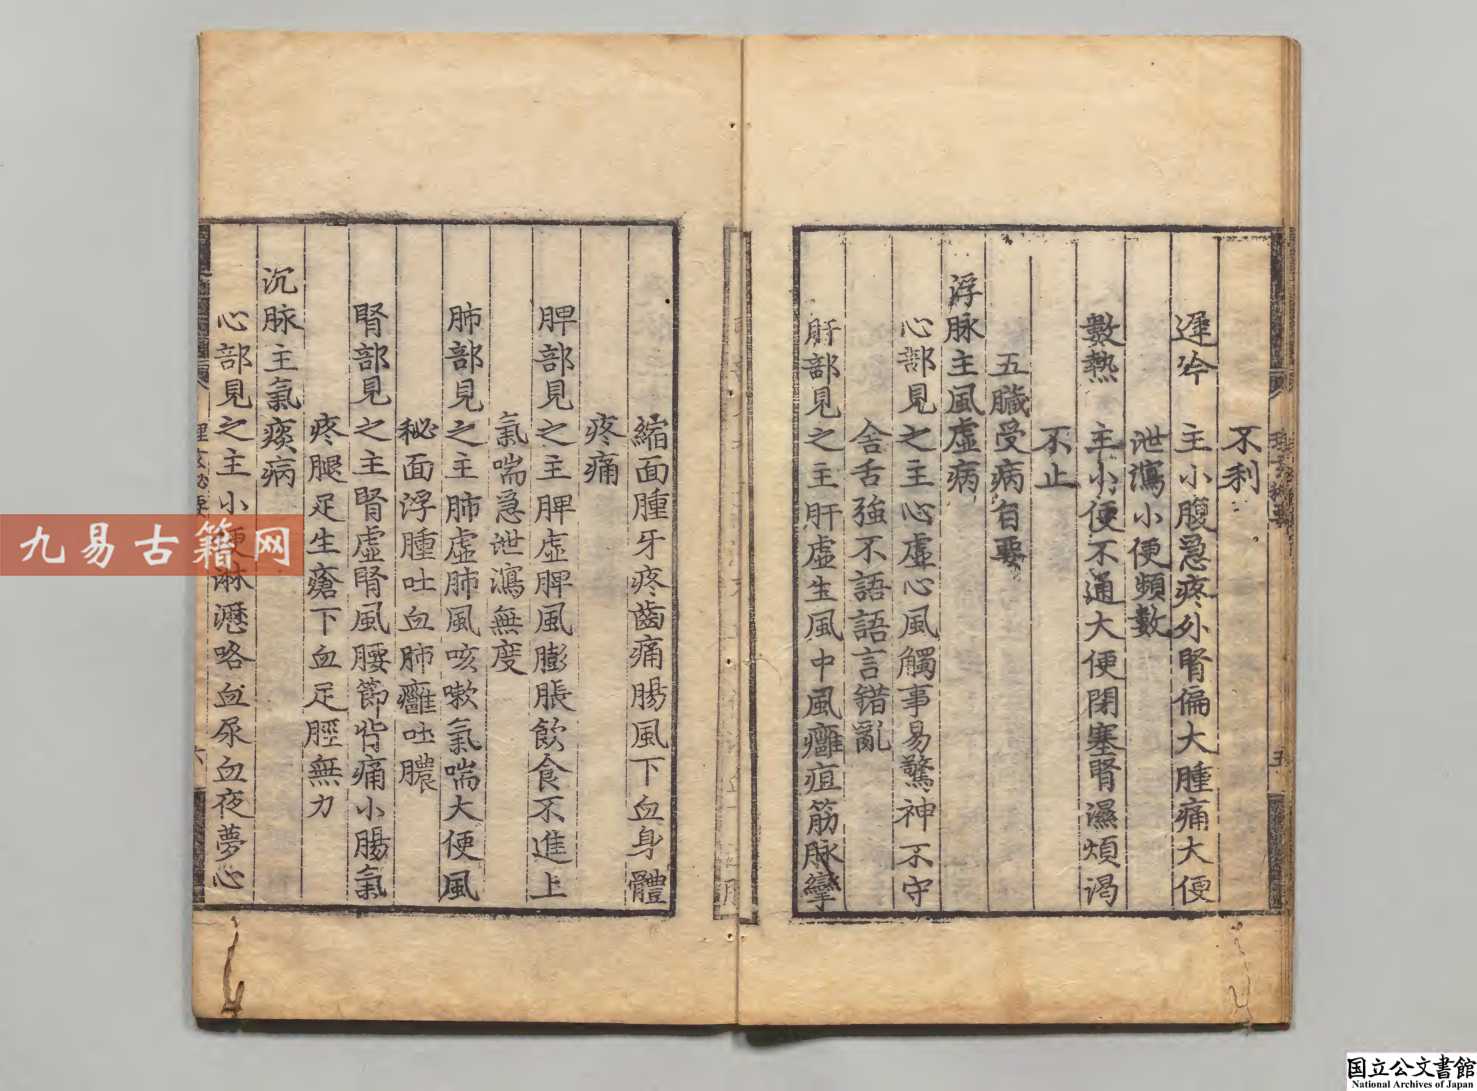 不利
遲冷　主小腹急疼外腎偏大腫痛大便
泄瀉小便頻數
數熱　主小便不通大便閉塞腎濕煩渴
不止
五臟受病旨要
浮脉主風虛病
心部見之主心虛心風觸事易驚神不守
舍舌強不語語言錯亂
肝部見之主肝虛生風中風癰疽筋脉攣
縮面腫牙疼齒痛腸風下血身體
疼痛
脾部見之主脾虛脾風膨脹飲食不進上
氣喘急泄瀉無度
肺部見之主肺虛肺風咳嗽氣喘大便風
秘面浮腫吐血肺癰吐膿
腎部見之主腎虛腎風腰節背痛小腸氣
疼腿足生瘡下血足脛無力
沉脉主氣痰病
心部見之主小便淋瀝咯血尿血夜夢心
五
六
九易古籍网
国立公文書館
National Archives of Japan